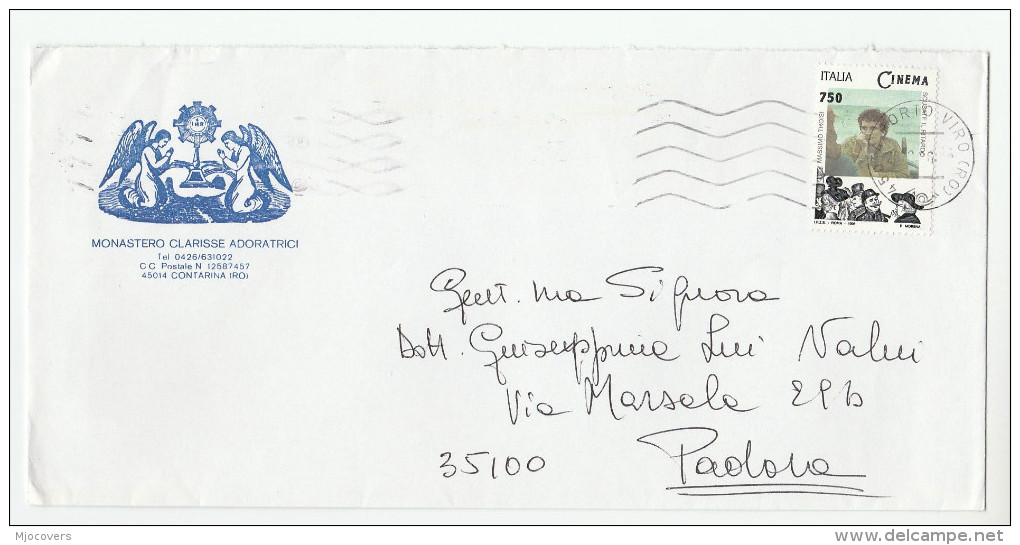 ITALIA CINEMA
750
MASSIMO TROISI
SCUSATE IL RITARDO
PORTO VIRO (RO)
I.P.Z.S. - ROMA - 1996
F. MORENA
MONASTERO CLARISSE ADORATRICI
Tel 0426/631022
C C Postale N 12587457
45014 CONTARINA (RO)
Gent.ma Signora
Dott. Giuseppina Lui Nalni
Via Marsala 29b
35100 Padova
Mjocovers
delcampe.net